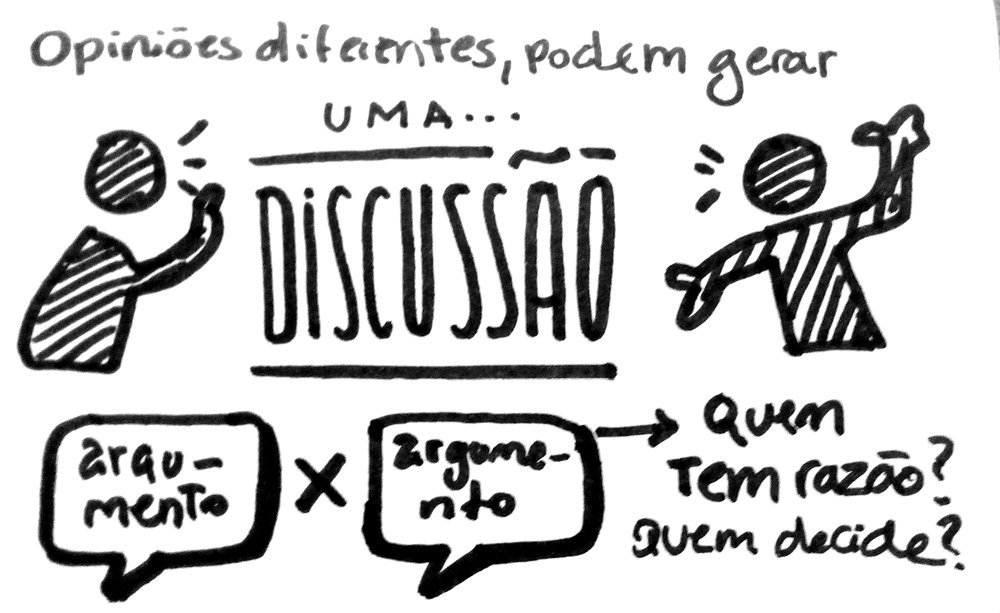 Opiniões diferentes, podem gerar
UMA...
DiSCUSSÃO
argu-
mento
X
argume-
nto
Quem
Tem razão?
Quem decide?